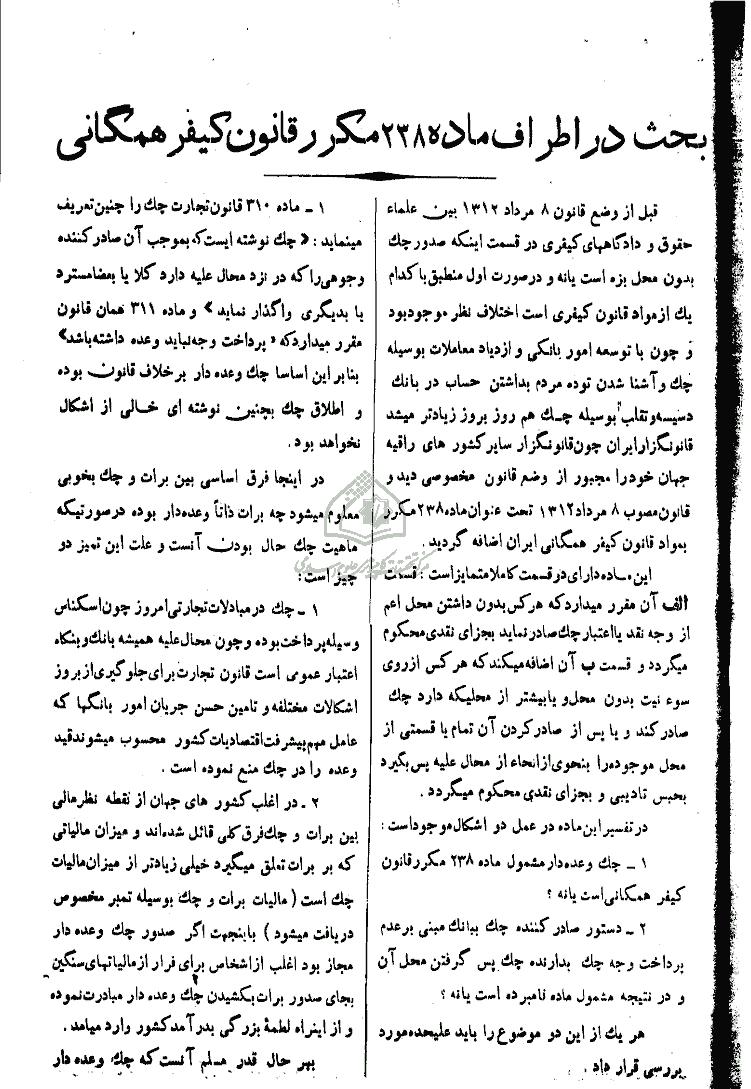 بحث در اطراف ماده ۲۳۸ مکرر قانون کیفر همگانی
قبل از وضع قانون ۸ مرداد ۱۳۱۲ بین علماء
حقوق و دادگاههای کیفری در قسمت اینکه صدور چك
بدون محل بزه است یانه و درصورت اول منطبق با کدام
یك از مواد قانون کیفری است اختلاف نظر موجود بود
و چون با توسعه امور بانکی و ازدیاد معاملات بوسیله
چك و آشنا شدن توده مردم بداشتن حساب در بانك
دسیسه و تقلب بوسیله چك هم روز بروز زیادتر میشد
قانونگزار ایران چون قانونگزار سایر کشور های راقیه
جهان خود را مجبور از وضع قانون مخصوصی دید و
قانون مصوب ۸ مرداد ۱۳۱۲ تحت عنوان ماده ۲۳۸ مکرر
بمواد قانون کیفر همگانی ایران اضافه گردید .
این ماده دارای دو قسمت کاملا متمایز است : قسمت
الف آن مقرر میدارد که هرکس بدون داشتن محل اعم
از وجه نقد یا اعتبار چك صادر نماید بجزای نقدی محکوم
میگردد و قسمت ب آن اضافه میکند که هر کس از روی
سوء نیت بدون محل و یا بیشتر از محلیکه دارد چك
صادر کند و یا پس از صادر کردن آن تمام یا قسمتی از
محل موجوده را بنحوی از انحاء از محال علیه پس بگیرد
بحبس تادیبی و بجزای نقدی محکوم میگردد .
در تفسیر این ماده در عمل دو اشکال موجود است :
۱ ــ چك وعده دار مشمول ماده ۲۳۸ مکرر قانون
کیفر همگانی است یانه ؟
۲ ــ دستور صادر کننده چك ببانك مبنی بر عدم
پرداخت وجه چك بدارنده چك پس گرفتن محل آن
و در نتیجه مشمول ماده نامبرده است یانه ؟
هر یك از این دو موضوع را باید علیحده مورد
بررسی قرار داد .
۱ ــ ماده ۳۱۰ قانون تجارت چك را چنین تعریف
مینماید : « چك نوشته ایست که بموجب آن صادر کننده
وجوهی را که در نزد محال علیه دارد کلا یا بعضا مسترد
یا بدیگری واگذار نماید » و ماده ۳۱۱ همان قانون
مقرر میدارد که « پرداخت وجه نباید وعده داشته باشد»
بنابر این اساسا چك وعده دار بر خلاف قانون بوده
و اطلاق چك بچنین نوشته ای خالی از اشکال
نخواهد بود .
در اینجا فرق اساسی بین برات و چك بخوبی
معلوم میشود چه برات ذاتاً وعده دار بوده در صورتیکه
ماهیت چك حال بودن آنست و علت این تمیز دو
چیز است :
۱ ــ چك در مبادلات تجارتی امروز چون اسکناس
وسیله پرداخت بوده و چون محال علیه همیشه بانك و بنگاه
اعتبار عمومی است قانون تجارت برای جلوگیری از بروز
اشکالات مختلفه و تامین حسن جریان امور بانگها که
عامل مهم پیشرفت اقتصادیات کشور محسوب میشوند قید
وعده را در چك منع نموده است .
۲ ــ در اغلب کشور های جهان از نقطه نظر مالی
بین برات و چك فرق کلی قائل شده اند و میزان مالیاتی
که بر برات تعلق میگیرد خیلی زیادتر از میزان مالیات
چك است ( مالیات برات و چك بوسیله تمبر مخصوص
دریافت میشود ) باینجهت اگر صدور چك وعده دار
مجاز بود اغلب از اشخاص برای فرار از مالیاتهای سنگین
بجای صدور برات بکشیدن چك وعده دار مبادرت نموده
و از اینراه لطمهٔ بزرگی بدرآمد کشور وارد میامد .
بهر حال قدر مسلم آنست که چك وعده دار